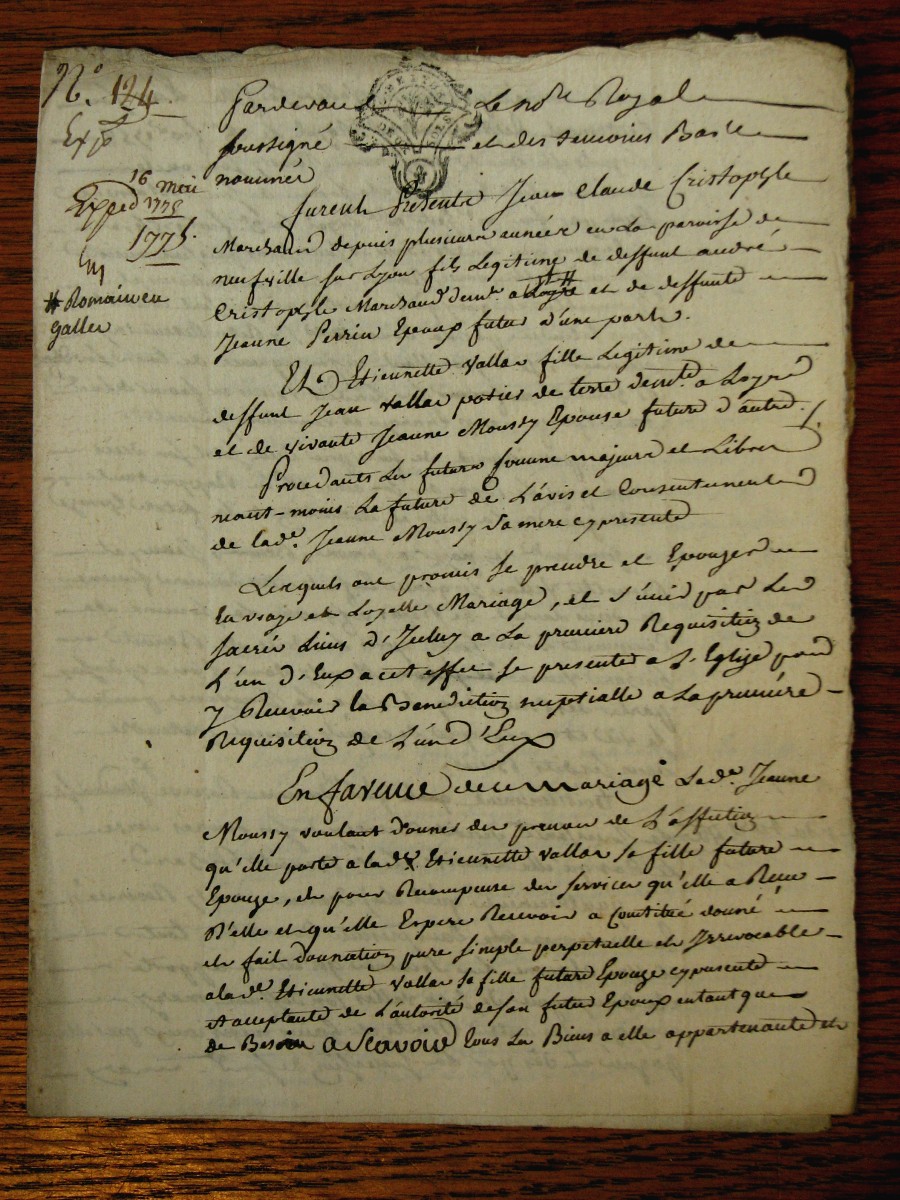 N.º 124.
Exp
Exped 16 mai
1775
1775.
# Romain en
galler
Pardevant Le no.re Royal
soussigné et des temoins Bas
nommés
furent Presents Jean Claude Cristophle
Marchand depuis plusieurs années en La paroisse de
neufville sur Lyon fils Legitime de deffunt andré
Cristophle Marchand dem.t a # et de deffunte
Jeanne Perrin Epoux futur d'une part.
Et Etiennette Vallas fille Legitime de
deffunt Jean Vallas potier de terre dem.t a Loyre
et de vivante Jeanne Moussy Epouse future d'autre.
Procedants Les futurs comme majeurs et Libres
neant-moins La future de L'avis et Consentement
de lad.e Jeanne Moussy Sa mere cy presente
Lesquels ont promis se prendre et Epouser
En vraye et Loyalle Mariage, et s'unir par Les
sacrés Liens d'Iceluy a La premiere Requisition de
L'un d'Eux a cet effet se presenter a L'Eglise pour
y Recevoir la Benediction nuptialle a La premiere
Requisition de L'un d'Eux
En faveur de ce mariage Lad.e Jeanne
Moussy voulant donner des preuves de L'affection
qu'elle porte a lad.e Etiennette Vallas sa fille future
Epouze, et pour Recompense des services qu'elle a Reçu
d'elle et qu'elle Espere Recevoir a Constitué donné
et fait donnation pure simple perpetuelle et Irrevocable
a lad.e Etiennette Vallas sa fille future Epouze cy presente
et acceptante de L'autorité de son futur Epoux entant que
de Besoin a Scavoir tous Les Biens a elle appartenants et